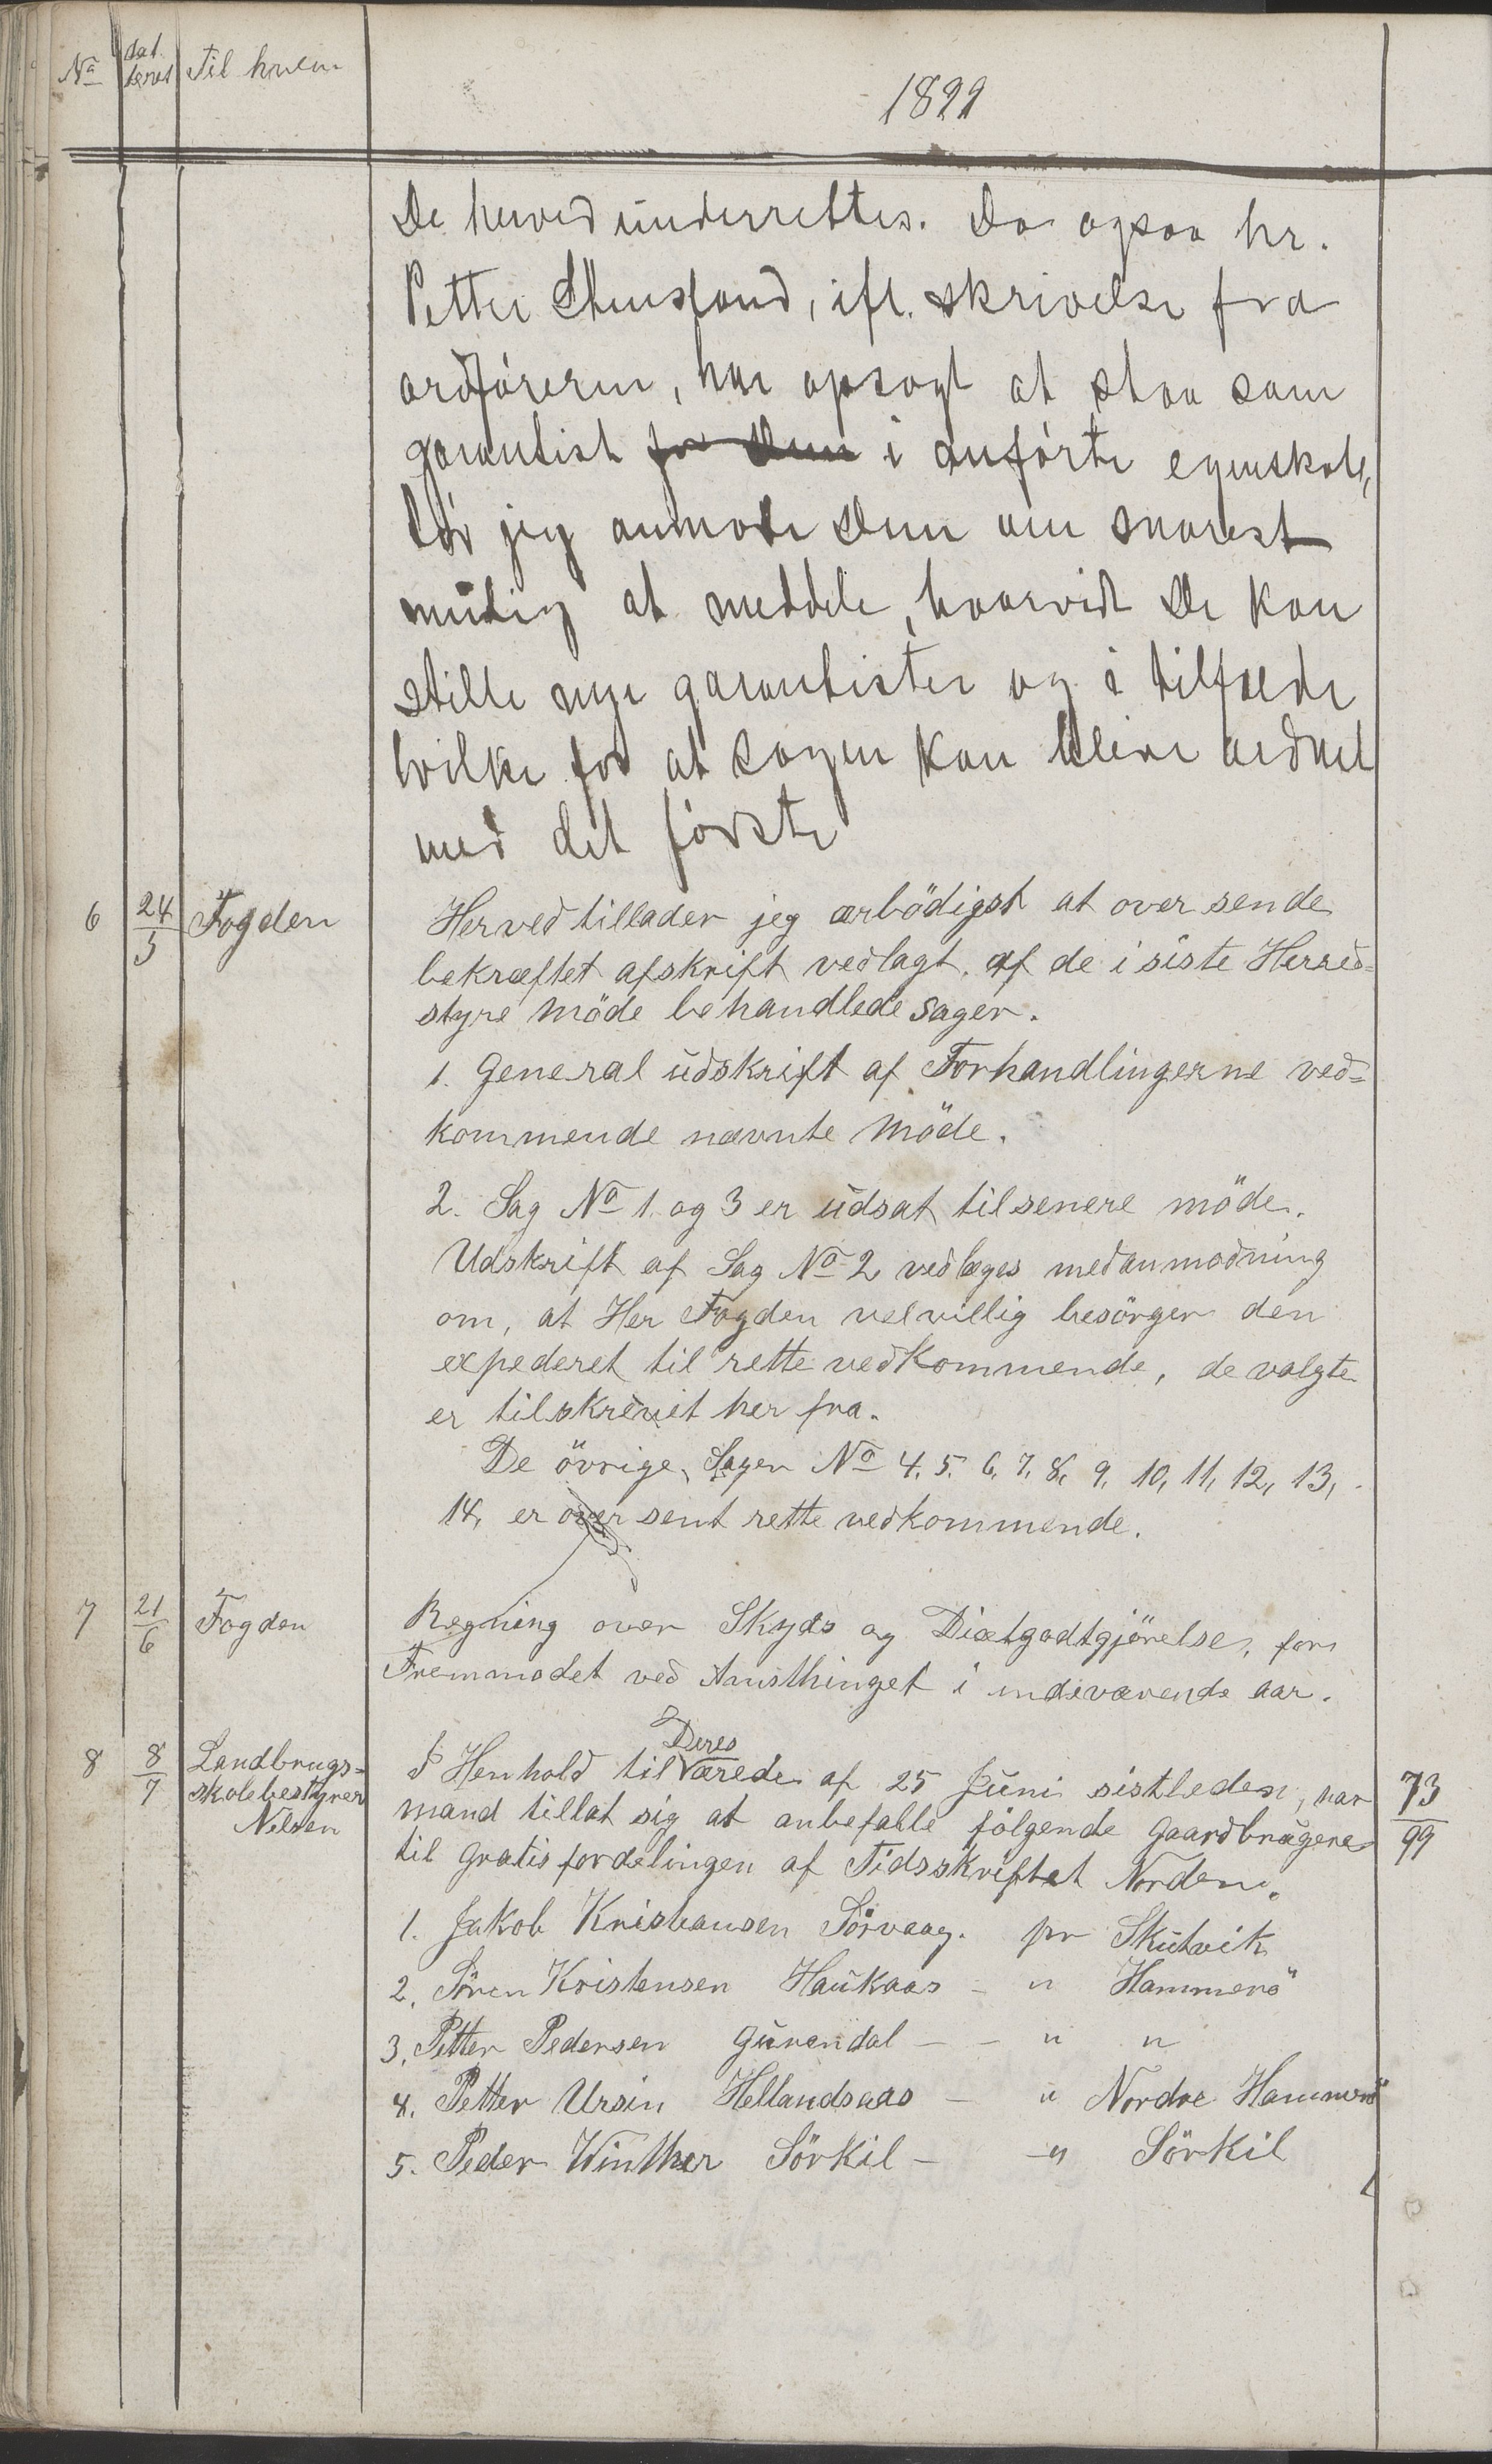 No dat teret Til hvem
1899
De herved underrettes. Da ogsaa hr.
Petter , ifl. skrivelse fra
ordføreren, har opsagt at staa som
garantist for Dem i anførte egenskab,
tør jeg anmode Dem om snarest
mulig at meddele, hvorvidt De kan
stille nye garantister og i tilfælde
hvilke for at sagen kan blive ordnet
med det første
6 24/5 Fogden Herved tillader jeg ærbödigst at over sende
bekræftet afskrift vedlagt. af de i siste Herred=
styre Möde behandlede sager.
1. General udskrift af Forhandlingerne ved=
kommende nævnte Möde.
2. Sag No 1. og 3 er udsat til senere möde.
Udskrift af Sag No 2 vedlæges med anmodning
om, at Her Fogden velvillig besörger den
expederet til rette vedkommende, de valgte
er tilskrevet her fra.
De övrige, Sager No 4, 5, 6, 7, 8, 9, 10, 11, 12, 13,
14, er over sent rette vedkommende.
7 21/6 Fogden Regning over Skyds og Diætgodtgjörelse, for
Fremmödet ved Amsthinget i indeværende aar.
8 8/7 Landbrugs=
skolebestyrer
Nilsen
Deres
I Henhold til Værede af 25 Juni sistleden, har 73/99
mand tillat sig at anbefalle fölgende Gaardbrugere
til gratis fordelingen af Tidsskriftet Norden.
1. Jakob Kristiansen Sörvaag. pr Skutvik
2. Sören Kristensen Haukaas - " Hammerö
3. Petter Pedersen Gurendal - - " "
4. Petter Ursin Hellandsaas - " Nordre Hammerö
5. Peder Winther Sörkil - - " Sörkil